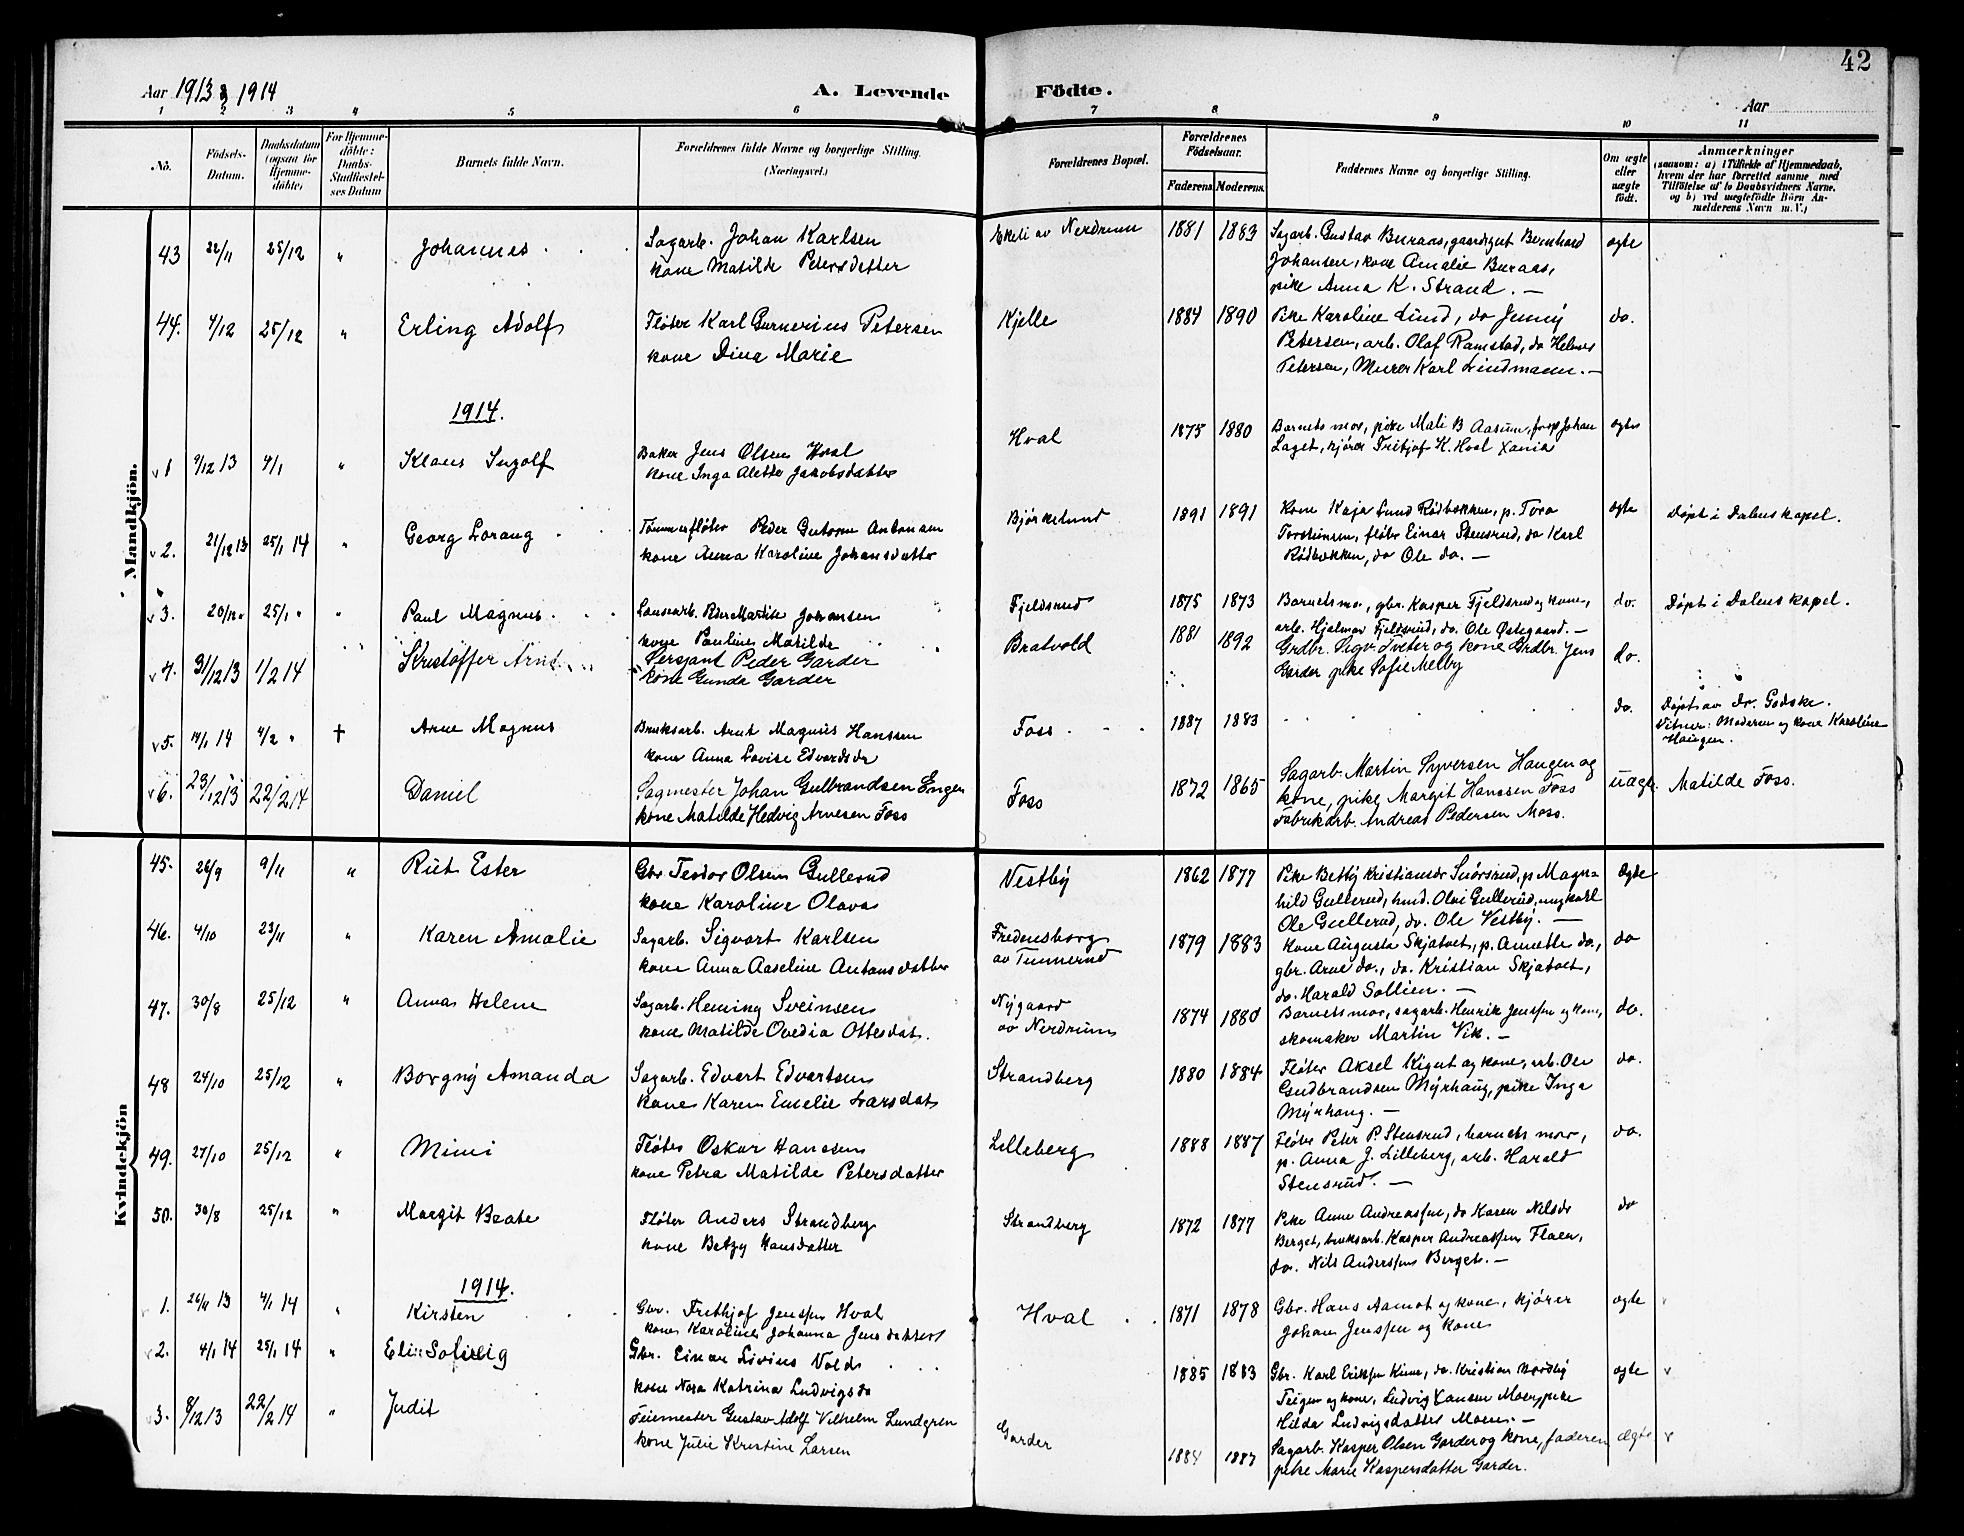 42
Aar 1913 & 1914
A. Levende Födte.
Aar
1 2 3 4 5 6 7 8 9 10 11
No.
Födsels-
Datum.
Daabsdatum
(ogsaa for
Hjemme-
döbte)
For Hjemme-
döbte:
Daabs-
Stadfæstel-
ses Datum
Barnets fulde Navn.
Forældrenes fulde Navne og borgerlige Stilling.
(Næringsvei.)
Forældrenes Bopæl.
Forældrenes
Födselsaar.
Faderens Moderens.
Faddernes Navne og borgerlige Stilling.
Om ægte
eller
uægte
födt.
Anmærkninger
(saasom: a) i Tilfælde af Hjemmedaab,
hvem der har forrettet samme med
Tilföielse af to Daabsvidners Navne,
og b) ved uægtefödte Börn An-
melderens Navn m. V.)
Mandkjön.
43 22/11 25/12 " Johannes
Sagarb. Johan Karlsen
kone Matilde Petersdatter
Ekeli av Nerdrum 1881 1883
Sagarb. Gustav Buraas, gaardgut Bernhard
Johansen, kone Amalie Buraas,
pike Anna K. Strand. —
ægte
44. 4/12 25/12 " Erling Adolf
Fløter Karl Gunerius Petersen
kone Dina Marie
Kjelle 1884 1890
Pike Karoline Lund, do Jenny
Petersen, arb. Olaf Ramstad, do Helmer
Petersen, Murer Karl Lindmann. —
do.
1914.
v 1 9/12 13 4/1 " Klaus Ingolf
Baker Jens Olsen Hval
kone Inga Alette Jakobsdatter
Hval 1875 1880
Barnets mor, pike Mali B Aasum, Johan
Laget, kjører Fritjof K. Hval Xania
ægte
v 2. 21/12 13 25/1 14 " Georg Lorang
Tømmerfløter Peder Guttorm Antonsen
kone Anna Karoline Johansdatter
Bjørkelund 1891 1891
Kone Kaja Lund Rødbækken, p. Tora
Torsteinsen, fløter Einar Stensrud, do Karl
Rødbækken, do Ole do. —
ægte
Døpt i Dalens kapel.
v 3. 20/12 " 25/1 " " Paul Magnus
Lænsearb. Peder Martin Johansen
kone Pauline Matilde
Fjeldsrud 1875 1873
Barnets mor, gbr. Kasper Fjeldsrud og kone,
arb. Hjalmar Fjeldsrud, do. Ole Østegaard. —
do.
Døpt i Dalens kapel.
v 4. 31/12 13 1/2 14 Kristoffer Arnt
Sersjant Peder Garder
kone Gunda Garder
Bratvold 1881 1892
Grdbr. Sigv. Tveter og kone Grdbr. Jens
Garder pike Sofie Melby
do.
v 5. 14/1 14 4/2 " † Arne Magnus
Bruksarb. Arnt Magnus Hanssen
kone Anna Lovise Edvardsdr
Foss 1887 1883
do.
Døpt av Dr. Godske.
Vitner: Moderen og kone Karoline
Haugen.
v 6. 23/12 13 22/2 14 Daniel
Sagmester Johan Gulbrandsen Engen
kone Matilde Hedvig Arnesen Foss
Foss 1872 1865
Sagarb. Martin Syversen Haugen og
kone, pike Margit Hanssen Foss
Fabrikarb. Andreas Pedersen Moss.
uægte
Matilde Foss.
Kvindekjön
45. 26/9 9/11 " Rut Ester
Gbr. Teodor Olsen Gullerud
kone Karoline Olava
Vestby 1862 1877
Pike Betty Kristiansdr Snørsrud, p. Magn-
hild Gullerud, hmd. Olai Gullerud, ungkarl
Ole Gullerud, do. Ole Vestby. —
Ægte
46. 4/10 23/11 " Karen Amalie
Sagarb. Sigvart Karlsen
kone Anna Aaseline Antonsdatter
Fredensborg
av Tunnerud
1879 1883
Kone Augusta Skjatvet, p. Annette do.,
gbr. Arne do., do. Kristian Skjatvet,
do. Harald Sollien. —
do
47. 30/8 25/12 " Anna Helene
Sagarb. Heming Sveinsen
kone Matilde Ovedia Ottesdat.
Nygaard
av Nerdrum
1874 1880
Barnets mor, sagarb. Henrik Jenssen og kone,
skomaker Martin Vik. —
do.
48 24/10 25/12 " Borgny Amanda
Sagarb. Edvart Edvartsen
kone Karen Emelie Larsdat
Strandberg 1880 1884
Fløter Aksel Kigut og kone, arb. Ole
Gudbrandsen Myrhaug, pike Inga
Myrhaug. —
do.
49. 27/10 25/12 " Mimi
Fløter Oskar Hanssen
kone Petra Matilde Petersdatter
Lilleberg 1888 1887
Fløter Peter P. Stensrud, barnets mor,
p. Anna J. Lilleberg, arb. Harald
Stensrud. —
do.
50. 30/8 25/12 " Margit Beate
Fløter Anders Strandberg
kone Betzy Hansdatter
Strandberg 1872 1877
Pike Anne Andreassen, do Karen Nilsdr
Berget, bruksarb. Kasper Andreassen Flaen,
do. Nils Anderssen Berget. —
do
1914.
1. 26/11 13 4/1 14 " Kirsten
Gbr. Frithjof Jenssen Hval
kone Karoline Johanna Jensdatter
Hval 1871 1878
Gbr. Hans Aamot og kone, kjører
Johan Jenssen og kone
ægte
v 2. 4/1 14 25/1 14 " Eli Solveig
Gbr. Einar Livius Vold
kone Nora Katrina Ludvigsdr
1885 1883
Gbr. Karl Eriksen Kinn, do. Kristian Nordby
Teigen og kone, Ludvig Hansen Moen, pike
Hilda Ludvigsdatter Moen. —
ægte v
v 3. 8/12 13 22/2 14 " Judit
Feiemester Gustav Adolf Vilhelm Lundgren
kone Julie Kristine Larsen
Garder 1884 1887
Sagarb. Kasper Olsen Garder og kone, faderen
pike Marie Kaspersdatter Garder.
Ægte v